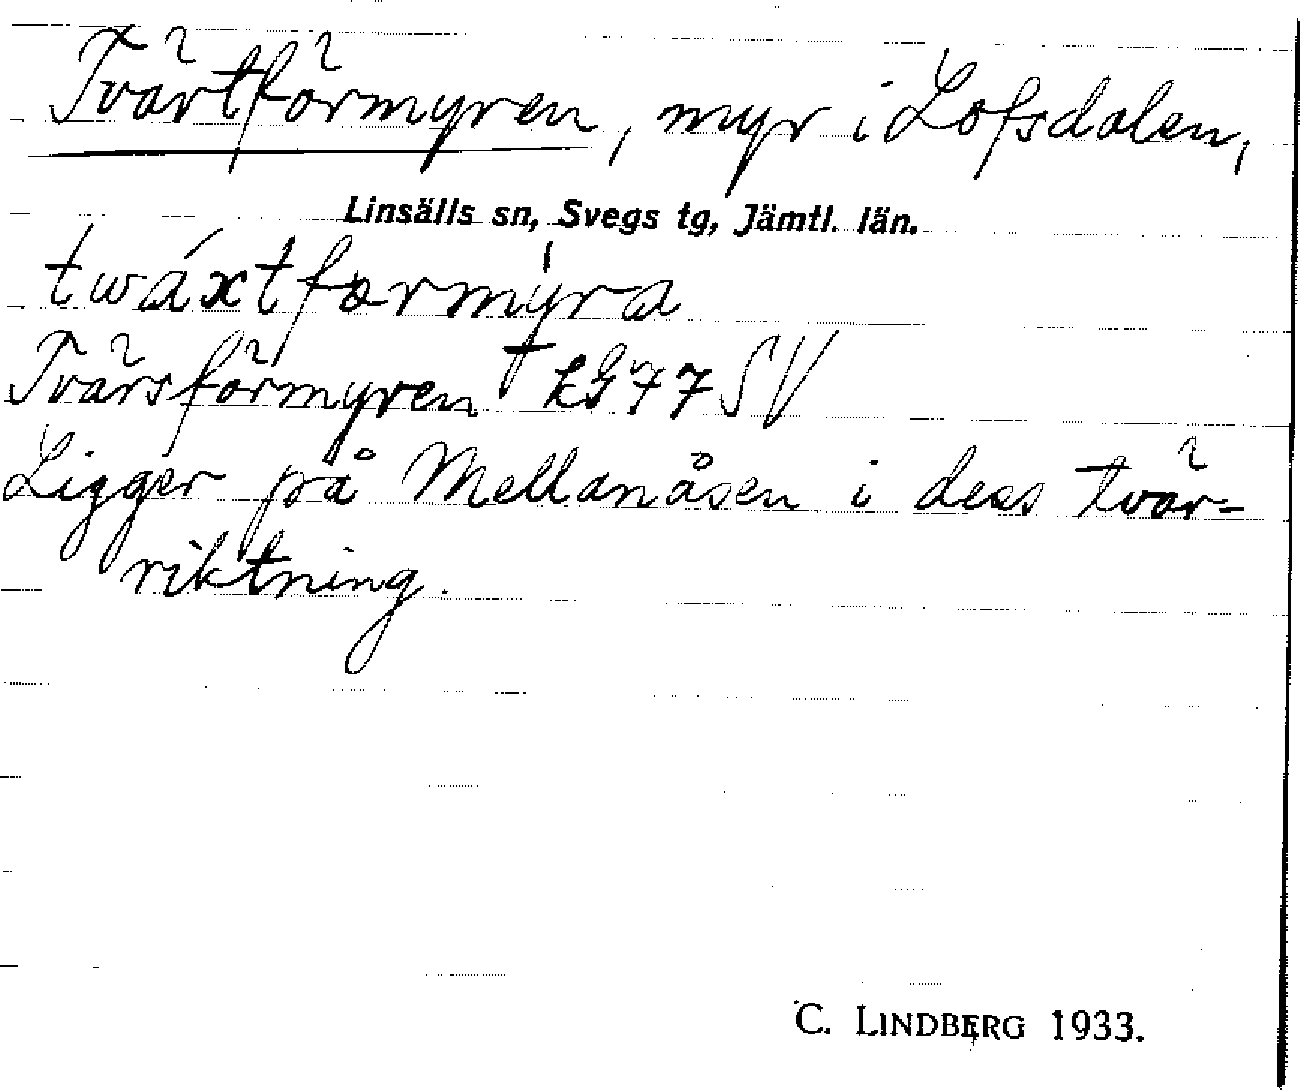 Tvärtförmyren, myr i Lofsdalen,
Linsälls sn, Svegs tg, Jämtl. län.
twáxtformýra
Tvärsförmyren EG47SV
Ligger på Mellanåsen i dess tvär-
riktning.
C. LINDBERG 1933.